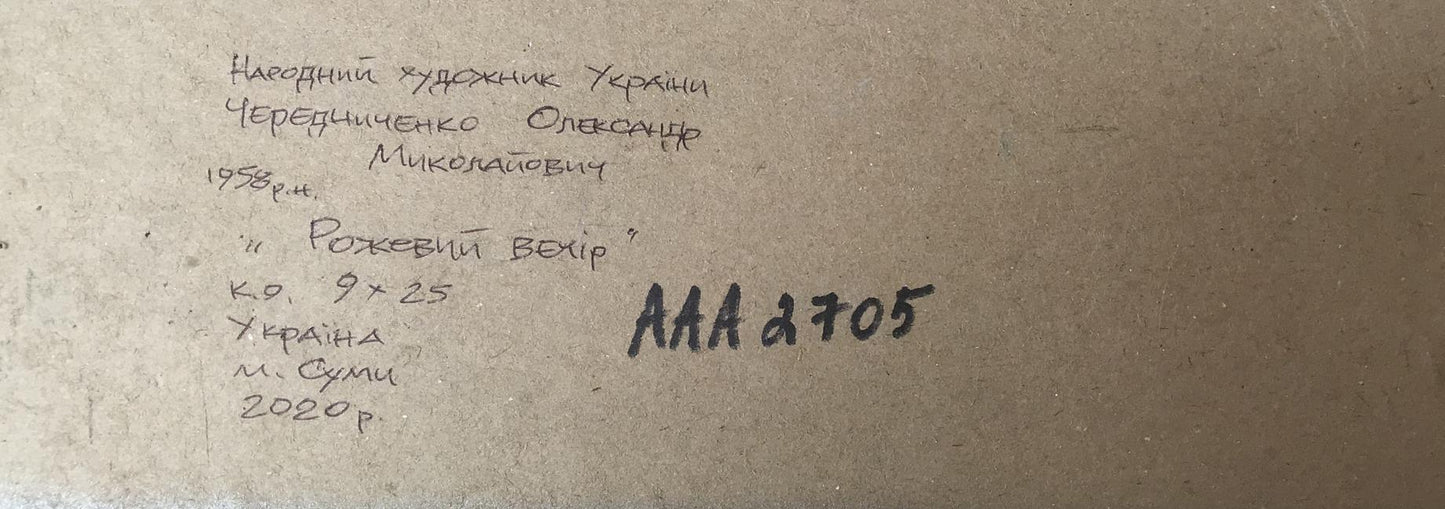 Народний художник України
Чередниченко Олександр
Миколайович
1958 р.н.
„ Рожевий вечір "
к.о. 9 x 25
Україна
м. Суми
2020 р.
AAA 2705